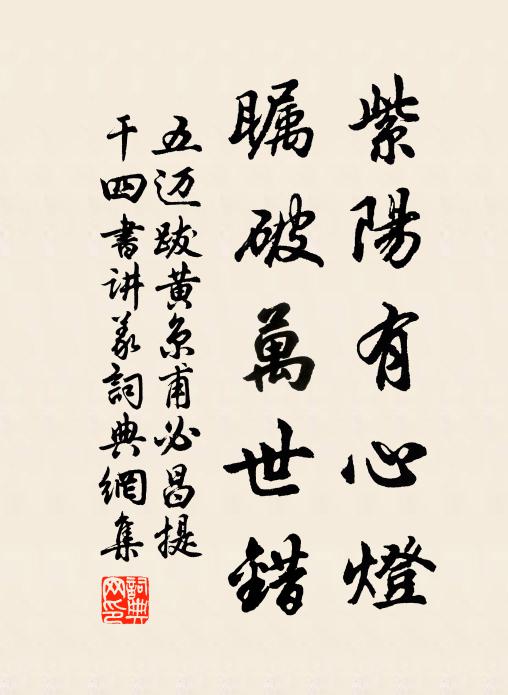 紫陽有心燈
矚破萬世錯
五迈跋黄京甫必昌提
干四書讲义詞典網集
詞典网印